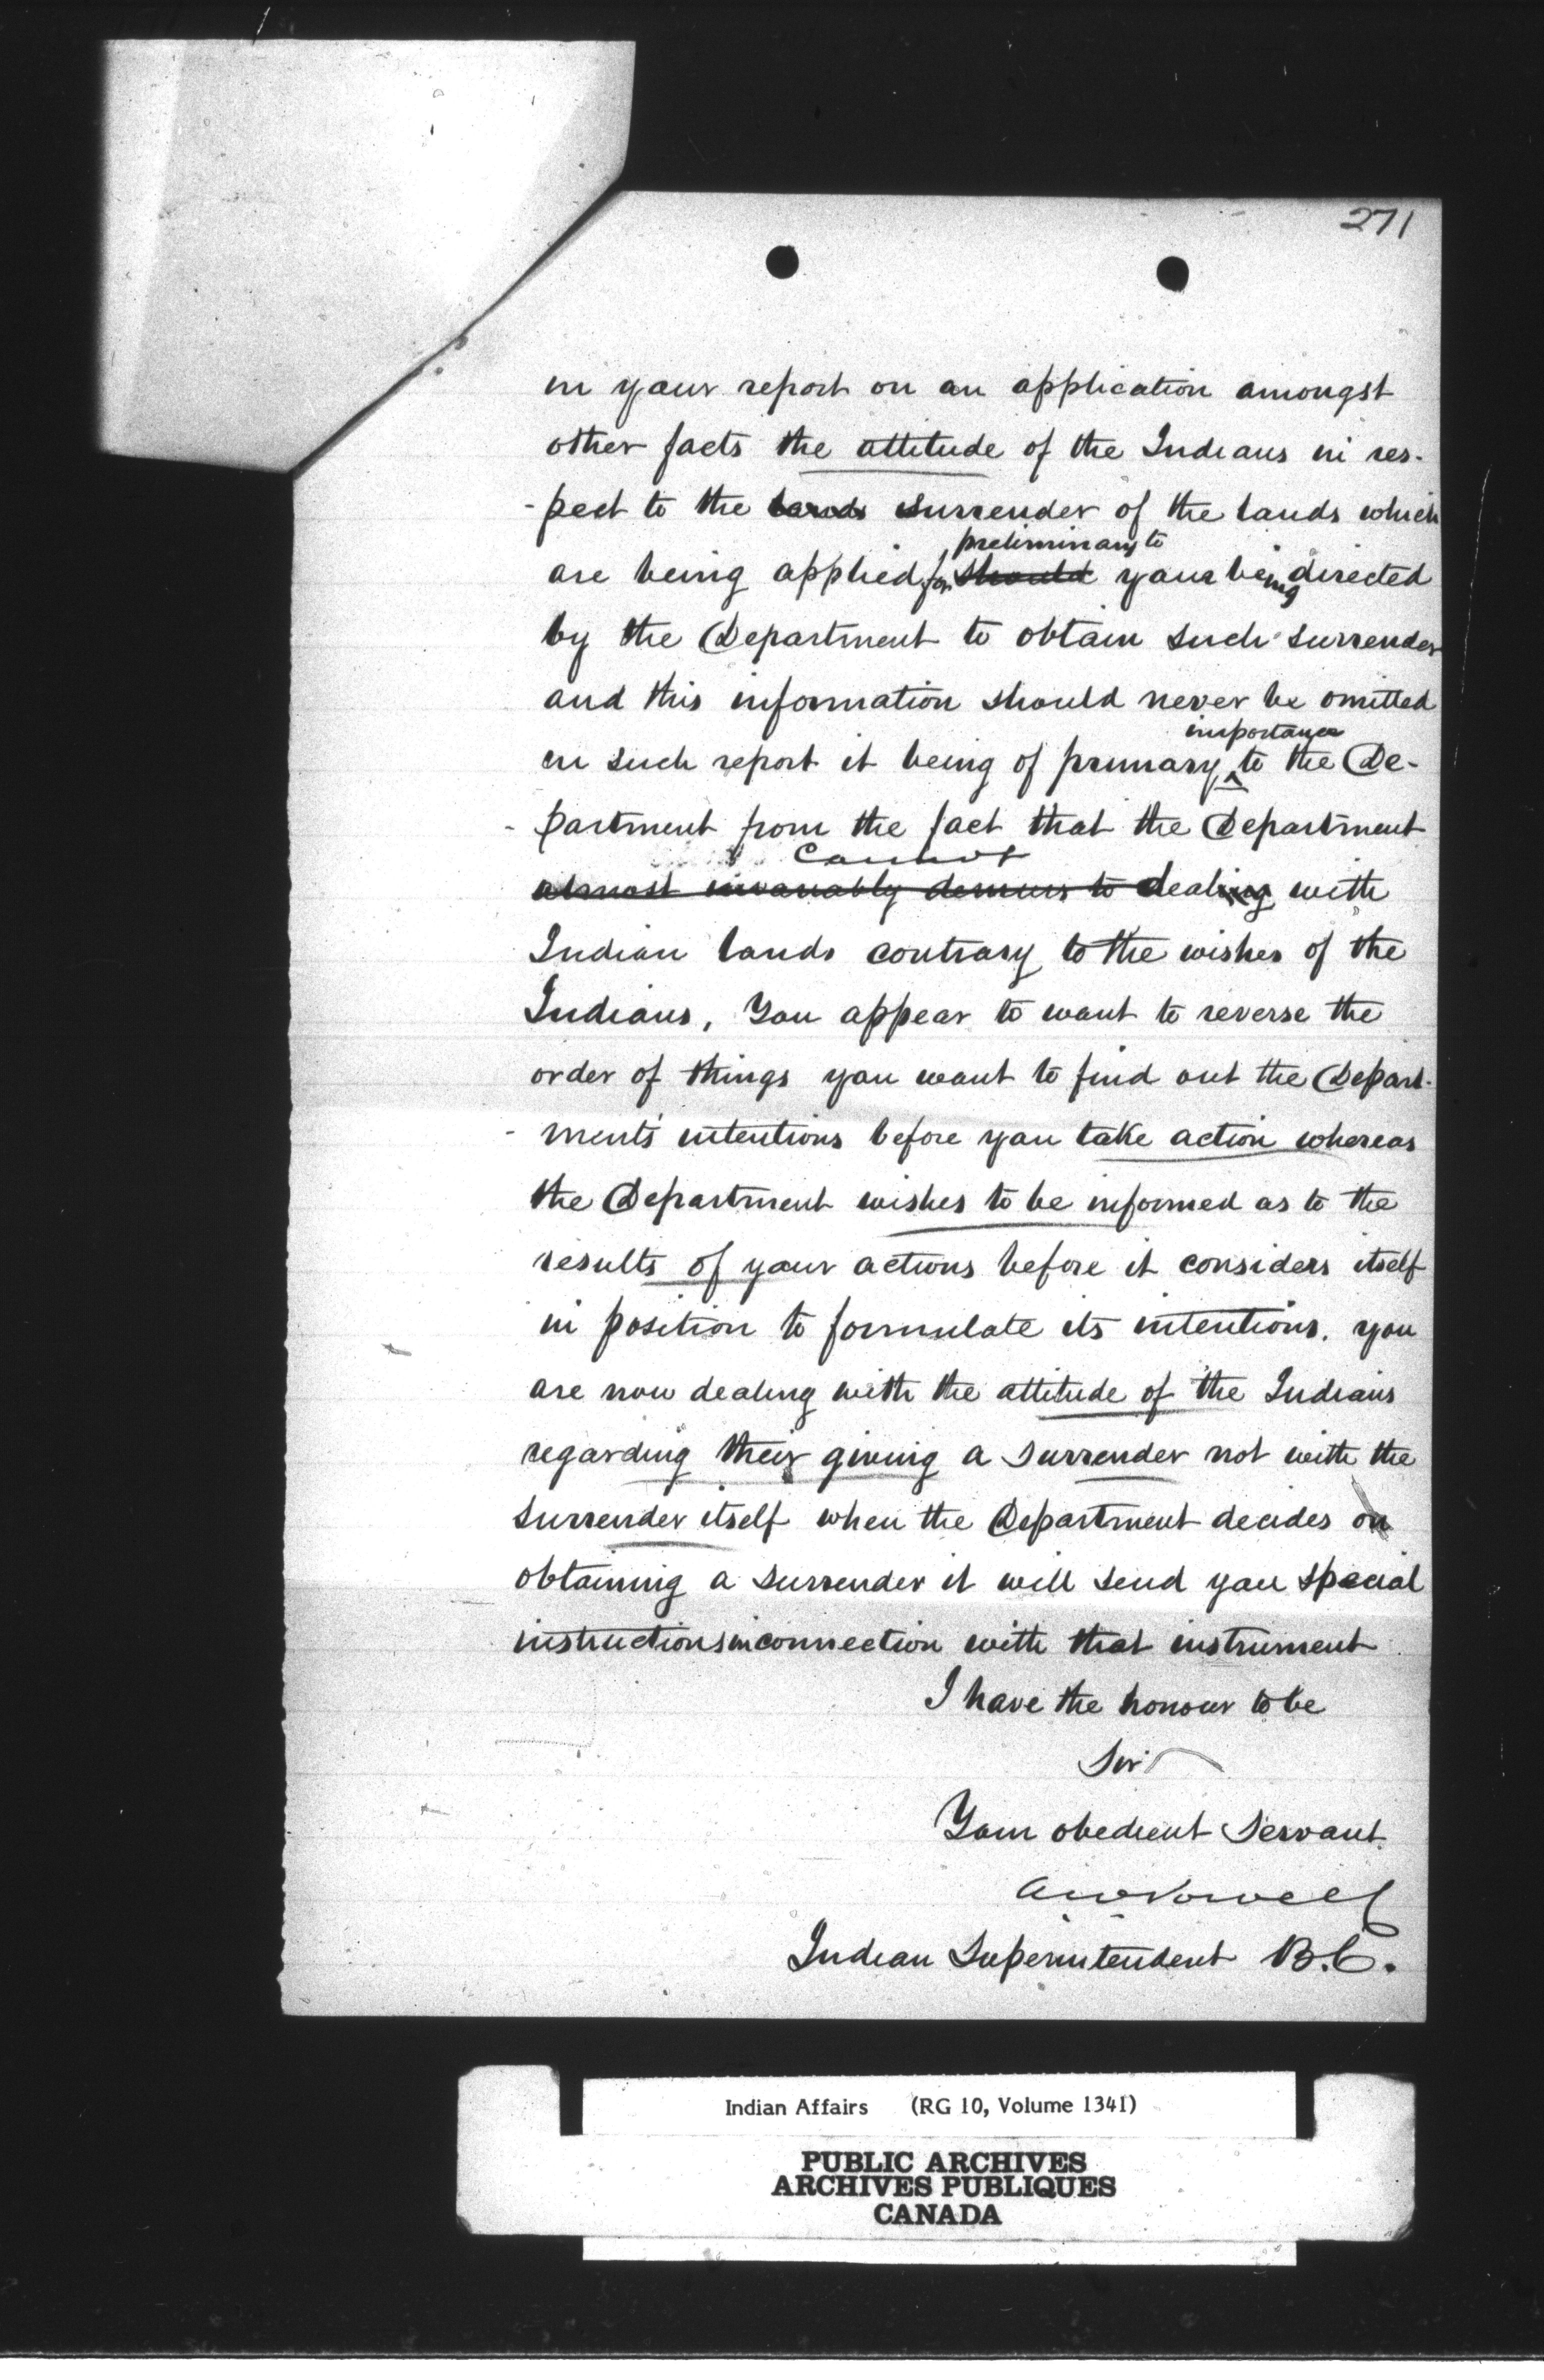 271
in your report on an application amongst
other facts the attitude of the Indians in res-
-pect to the lands surrender of the lands which
preliminary to
are being applied for should your being directed
by the Department to obtain such surrender
and this information should never be omitted
importance
in such report it being of primary to the De-
-partment from the fact that the Department
cannot
almost invariably demurs to dealing with
Indian lands contrary to the wishes of the
Indians, You appear to want to reverse the
order of things you want to find out the Depart-
-ment's intentions before you take action whereas
the Department wishes to be informed as to the
results of your actions before it considers itself
in position to formulate its intentions. you
are now dealing with the attitude of the Indians
regarding their giving a surrender not with the
surrender itself when the Department decides on
obtaining a surrender it will send you special
instructions in connection with that instrument
I have the honour to be
Sir
Your obedient Servant
AWVowell
Indian Superintendent B.C.
Indian Affairs (RG 10, Volume 1341)
PUBLIC ARCHIVES
ARCHIVES PUBLIQUES
CANADA